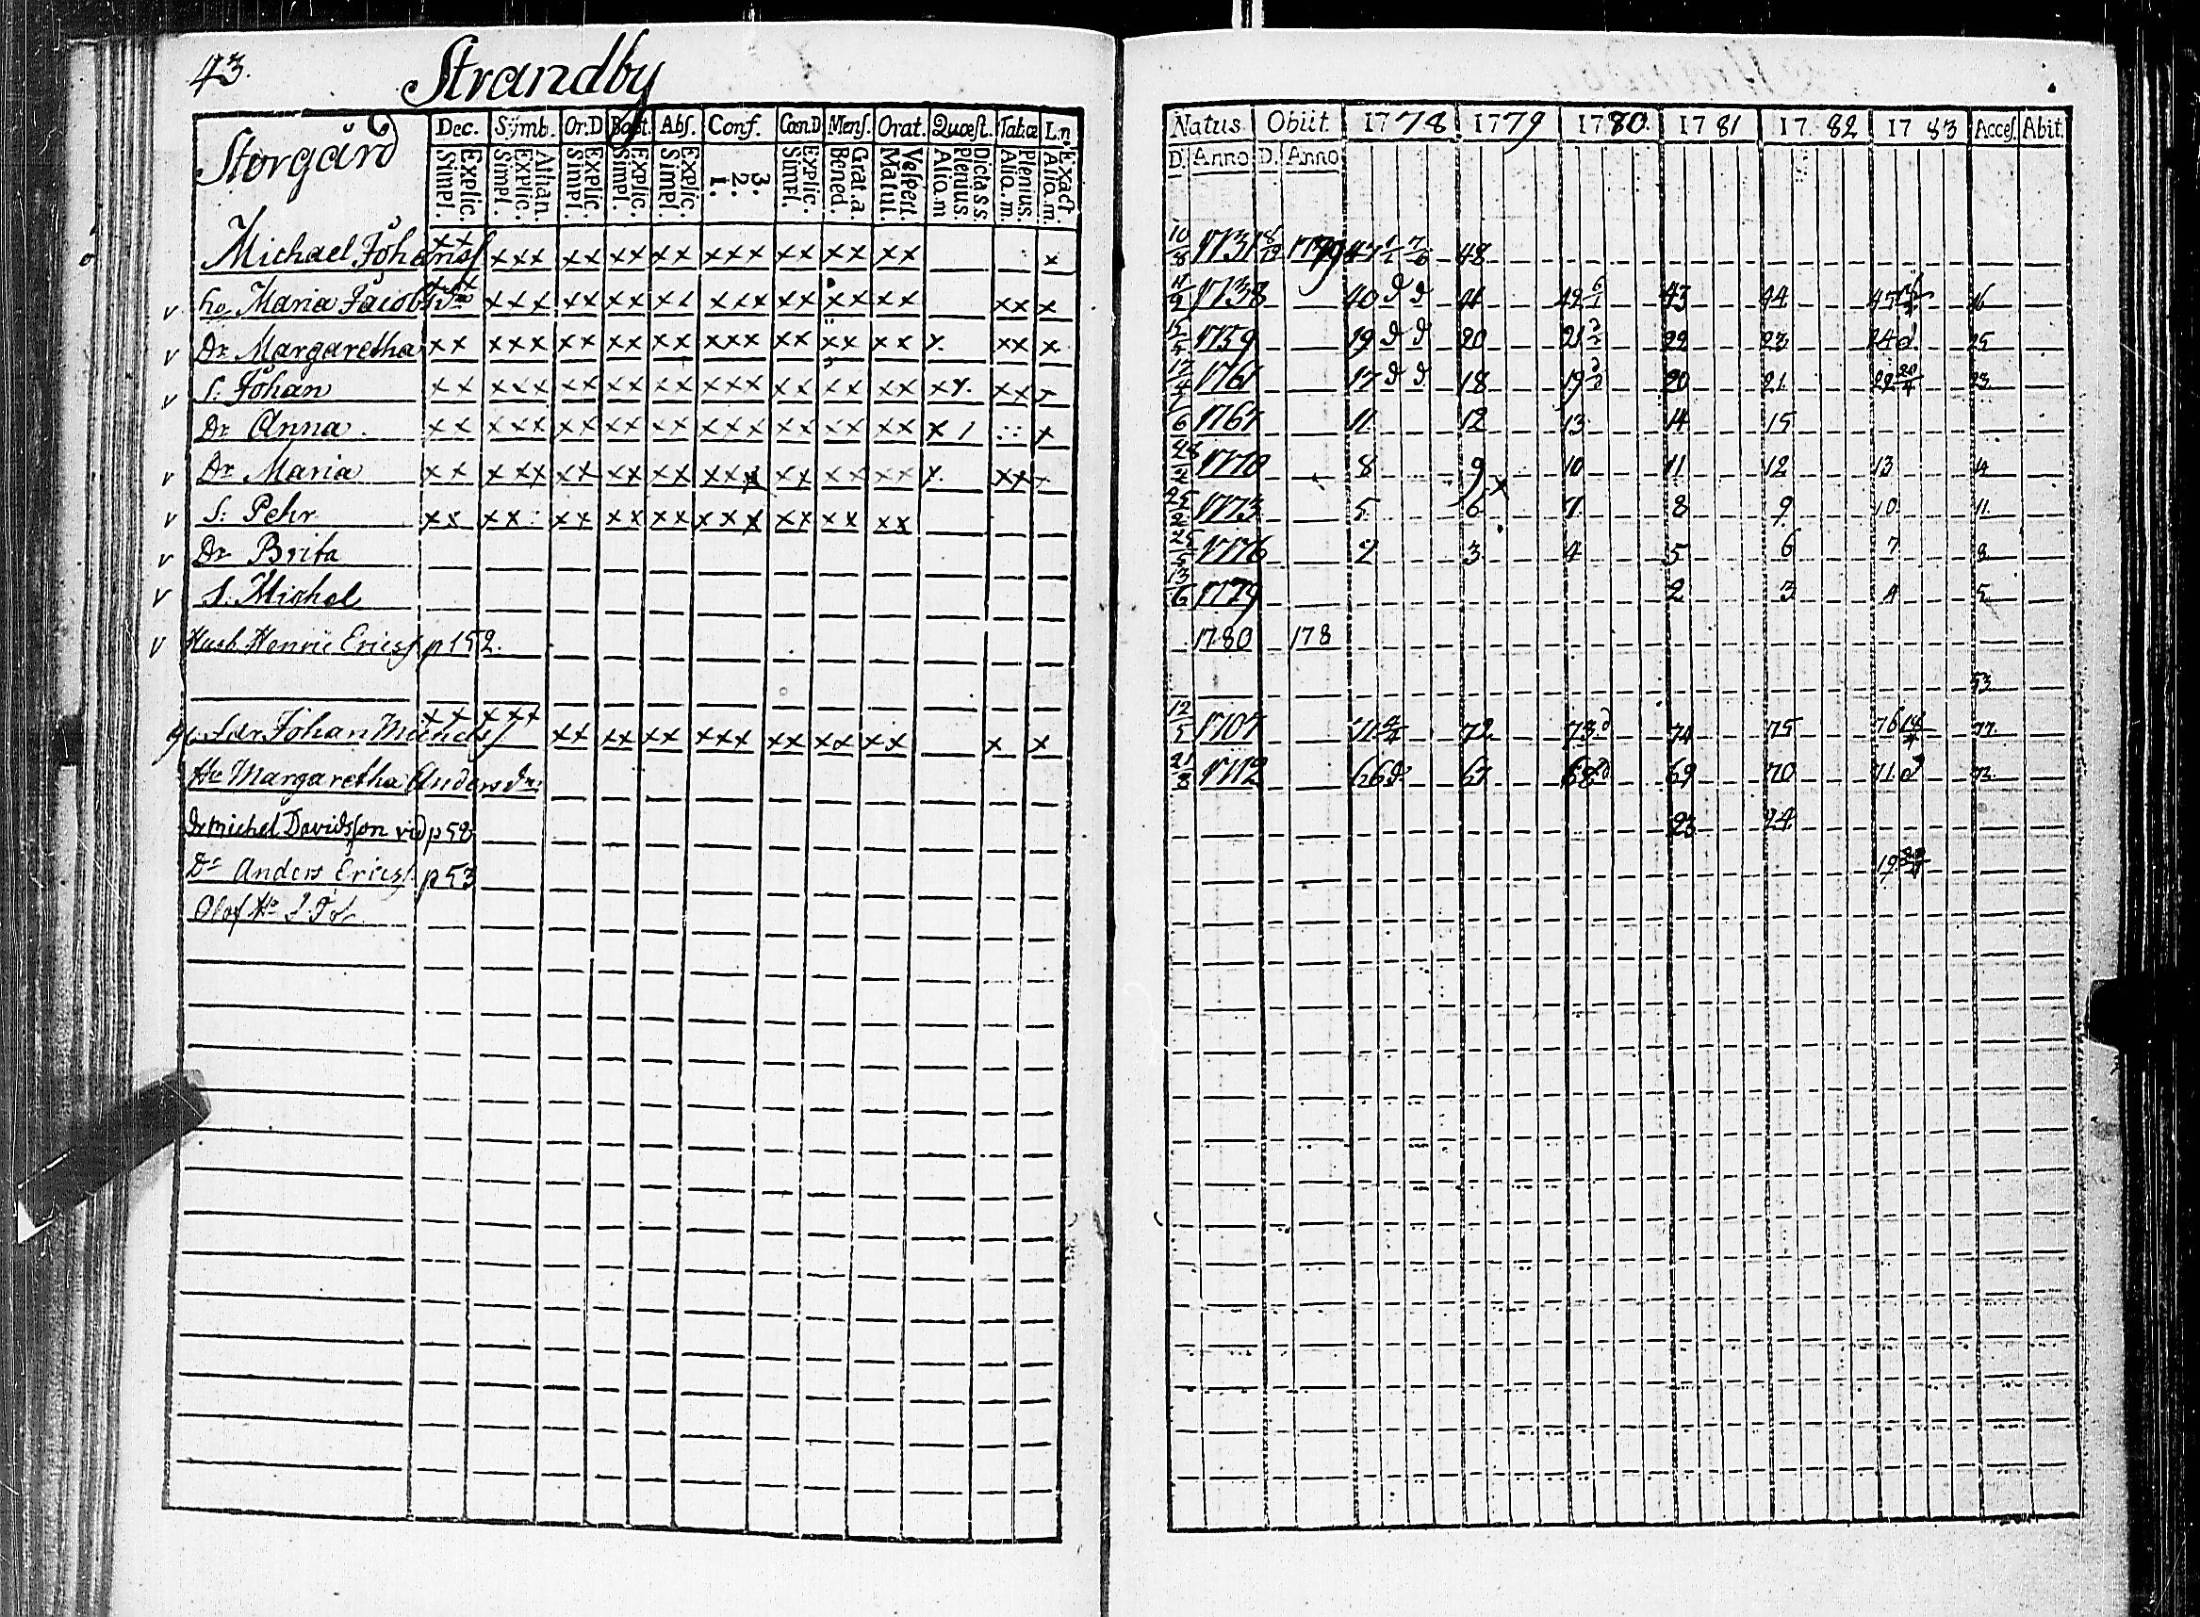 43. Strandby
Storgård
Dec. Symb. Or.D Bapt. Abs. Conf. Cœn.D Mens. Orat. Quæst. Tabææ L.n.
Simpl. Explic. Simpl. Explic. Athan. Simpl. Explic. Simpl. Explic. Simpl. Explic. 1. 2. 3. Simpl. Explic. Bened. Grat.a. Matut. Vespert. Alio.m Plenius. Dicta s.s. Alio.m. Plenius. Alio.m. Exact.
Natus Obiit. 1778 1779 1780. 1781 1782 1783 Acces. Abit.
D. Anno D. Anno
Michael Johanss xx xxx xx xx xx xxx xx xx xx x 10/8 1731 1779 48
ho Maria Jacobsdr xx xxx xx xx xx xxx xx xx xx xx x 1738 40 d d 41 42 43 44 45 46
Dr Margaretha xx xxx xx xx xx xxx xx xx xx x. xx x 1759 19 d d 20 21 22 23 24 d 25
S. Johan xx xxx xx xx xx xxx xx xx xx xx. xx x 12/4 1761 17 d d 18 19 20 21 22 23
Dr Anna. xx xxx xx xx xx xxx xx xx xx x / :: x 1767 11 12 13 14 15
Dr Maria xx xxx xx xx xx xxx xx xx xx x. xx x 1770 8 9 10 11 12 13 14
S. Pehr xx xx xx xx xx xxx xx xx xx 1773 5 6 7 8 9 10 11
Dr Brita 1776 2 3 4 5 6 7 8
S. Michel 13/6 1779 2 3 4 5
Henric Ericss p 152. 1780 178
53
Johan xx xxx xx xx xx xxx xx xx xx x x 12/1 1707 71 72 73 d 74 75 76 77
Hu Margaretha Andersdr 21/8 1712 66 d 67 68 69 70 71 d 72
dr Michel Davidsson vid p 52 23 24
Dr Anders Ericss. p 53 19
Olof